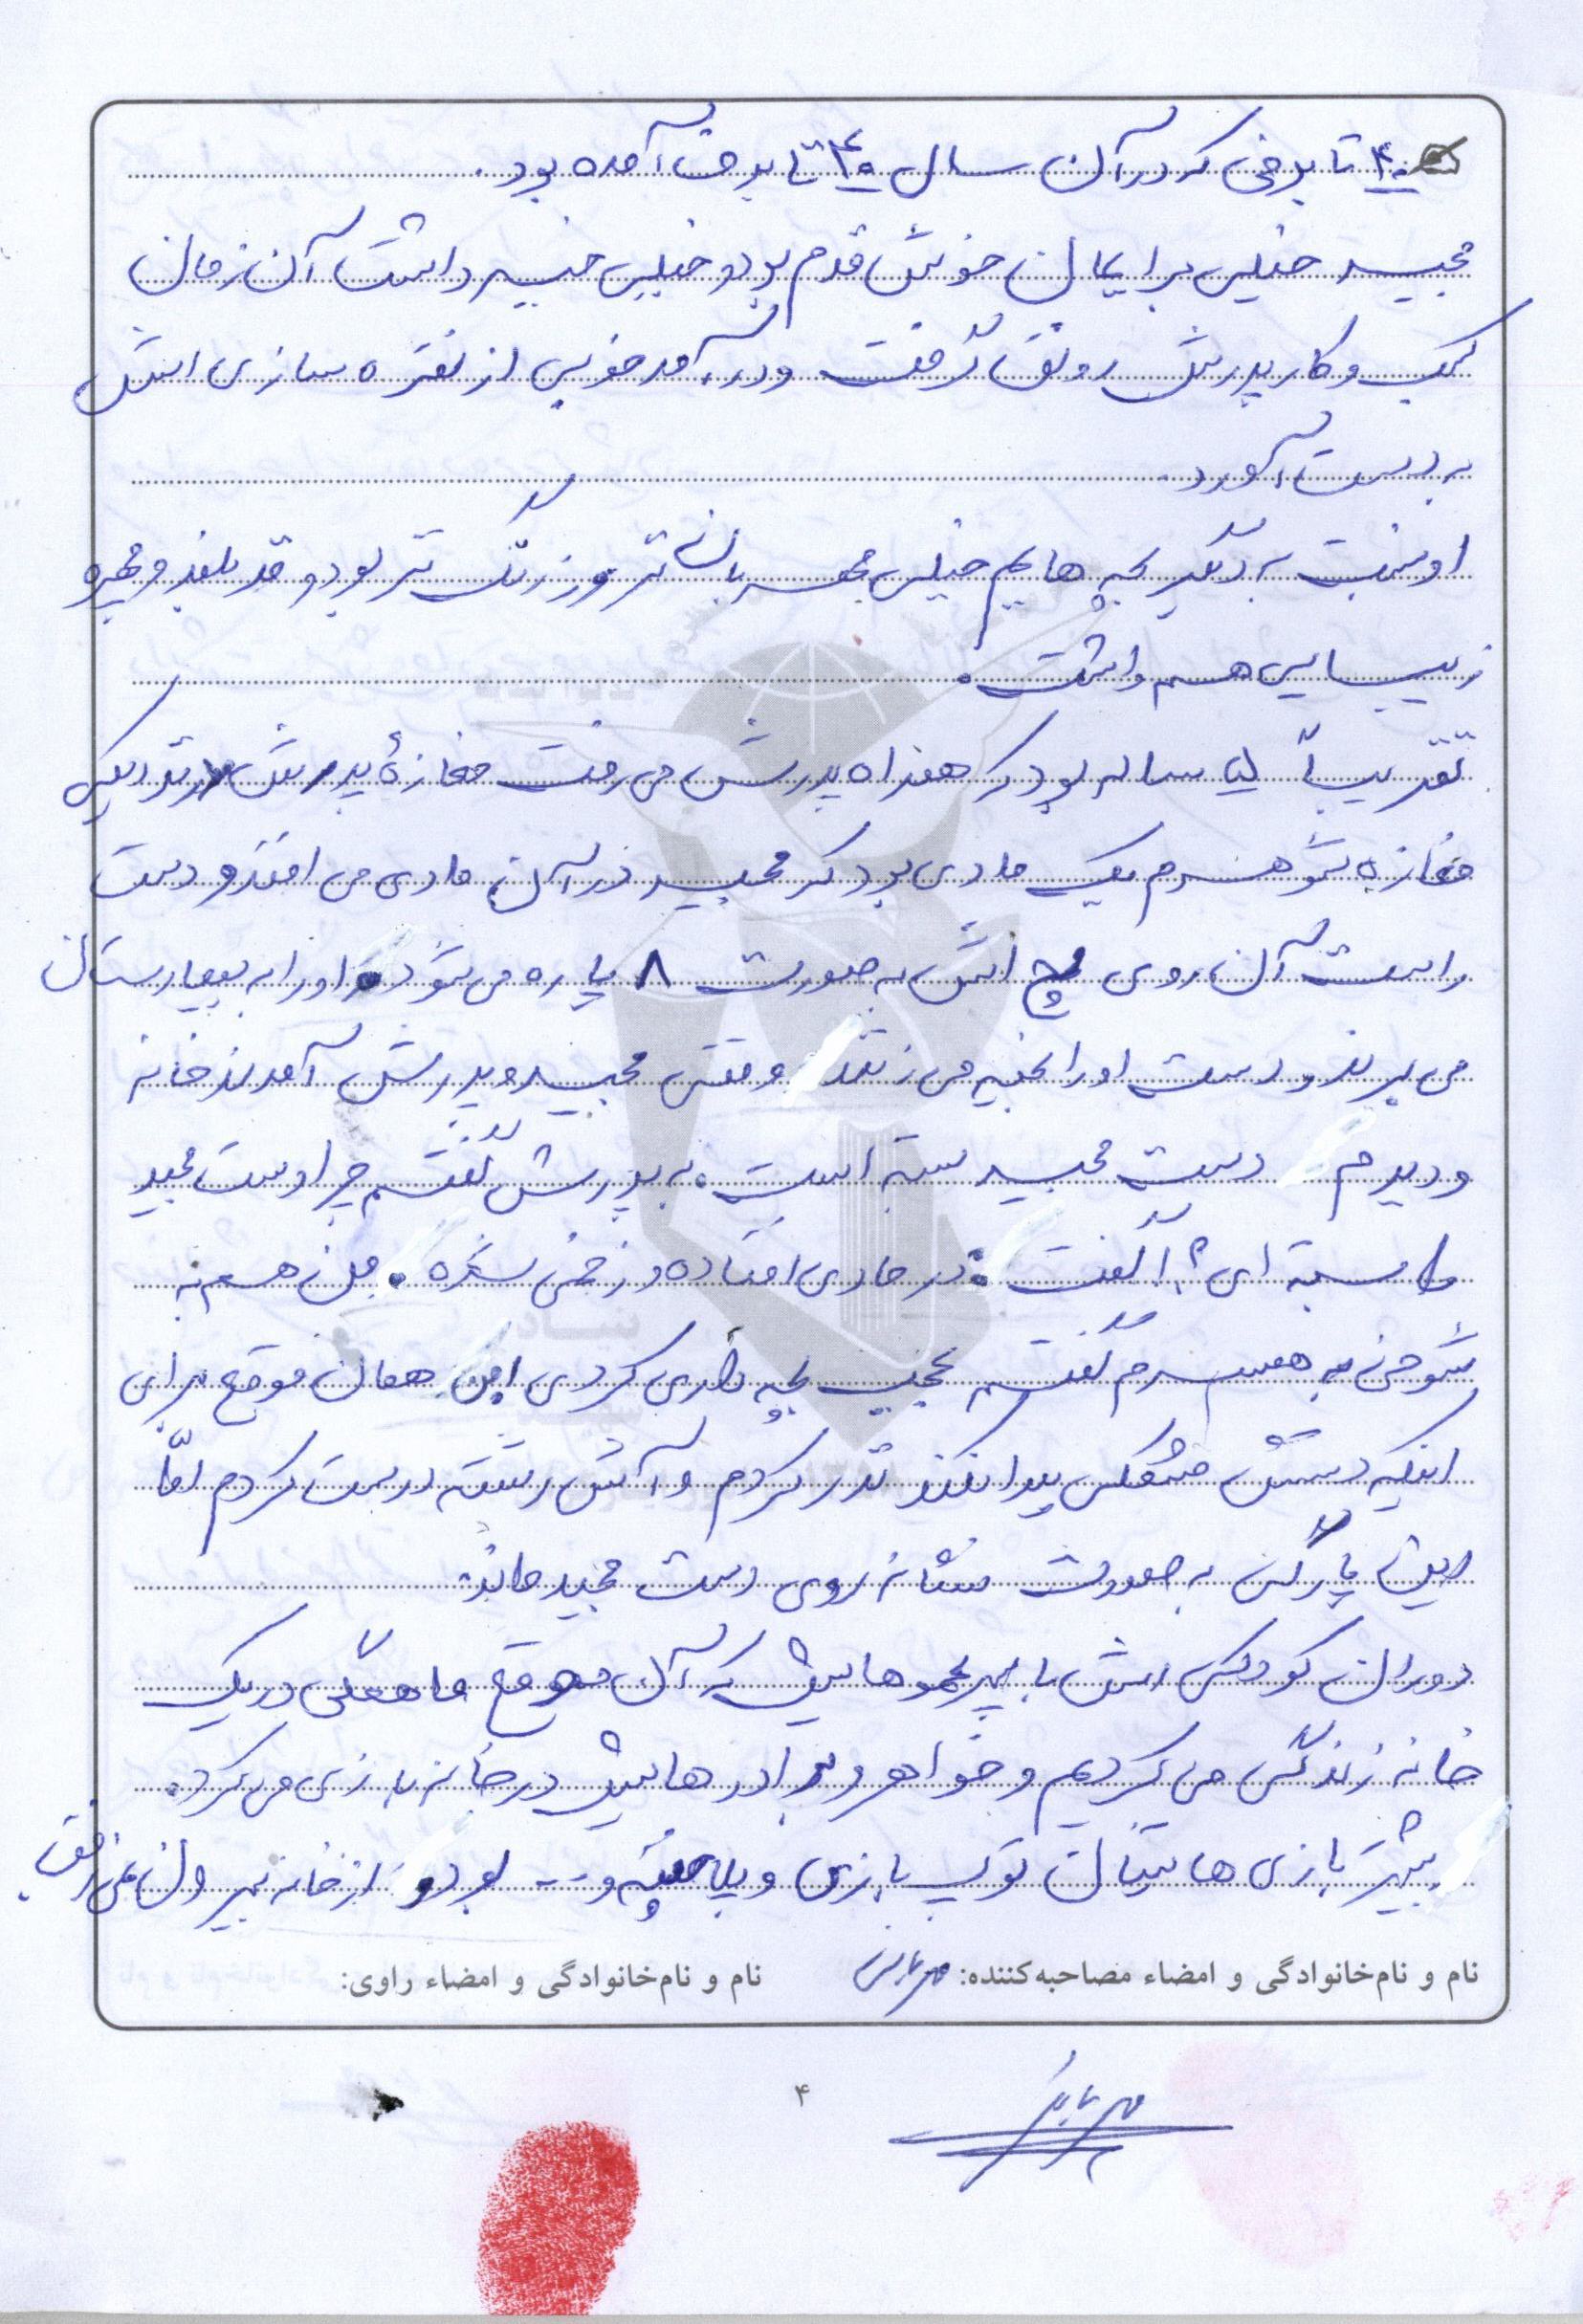 ۴۰ تا برفی که در آن سال ۴۰ تا برف آمده بود.
مجید خیلی برایمان خوش قدم بود و خیلی خیر داشت آن زمان
کسب و کار پدرش رونق گرفت و درآمد خوبی از نقره سازی اش
به دست آورد.
او نسبت به دیگر بچه هایم خیلی مهربان تر و زرنگ تر بود و قد بلند و چهره
زیبایی هم داشت.
تقریباً ساله بود که همراه پدرش می رفت مغازهٔ پدرش نزدیکی
مغازه شوهرم یک مادی بود که مجید در آن مادی می افتد و دست
راست آن روی مچ اش به صورت ۸ پاره می شود او را به بیمارستان
می برند و دست او را بخیه می زنند وقتی مجید و پدرش آمدند خانه
و دیدم دست مجید بسته است. به پدرش گفتم چرا دست مجید
را بسته ای؟! گفت: در مادی افتاده و زخمی شده. من هم به
شوخی به همسرم گفتم عجب بچه داری کردی همان موقع برای
اینکه دستش مشکلی پیدا نکند نذر کردم و آش رشته درست کردم امّا
این پارگی به صورت نشانه روی دست مجید ماند.
دوران کودکی اش با پسرعموهایش که آن موقع ما همگی در یک
خانه زندگی می کردیم و خواهر و برادرهایش در خانه بازی می کرد.
بیشتر بازی هایشان توپ بازی و ... بود و از خانه بیرون نمی رفت.
نام و نام‌خانوادگی و امضاء مصاحبه‌کننده: نام و نام‌خانوادگی و امضاء راوی:
۴